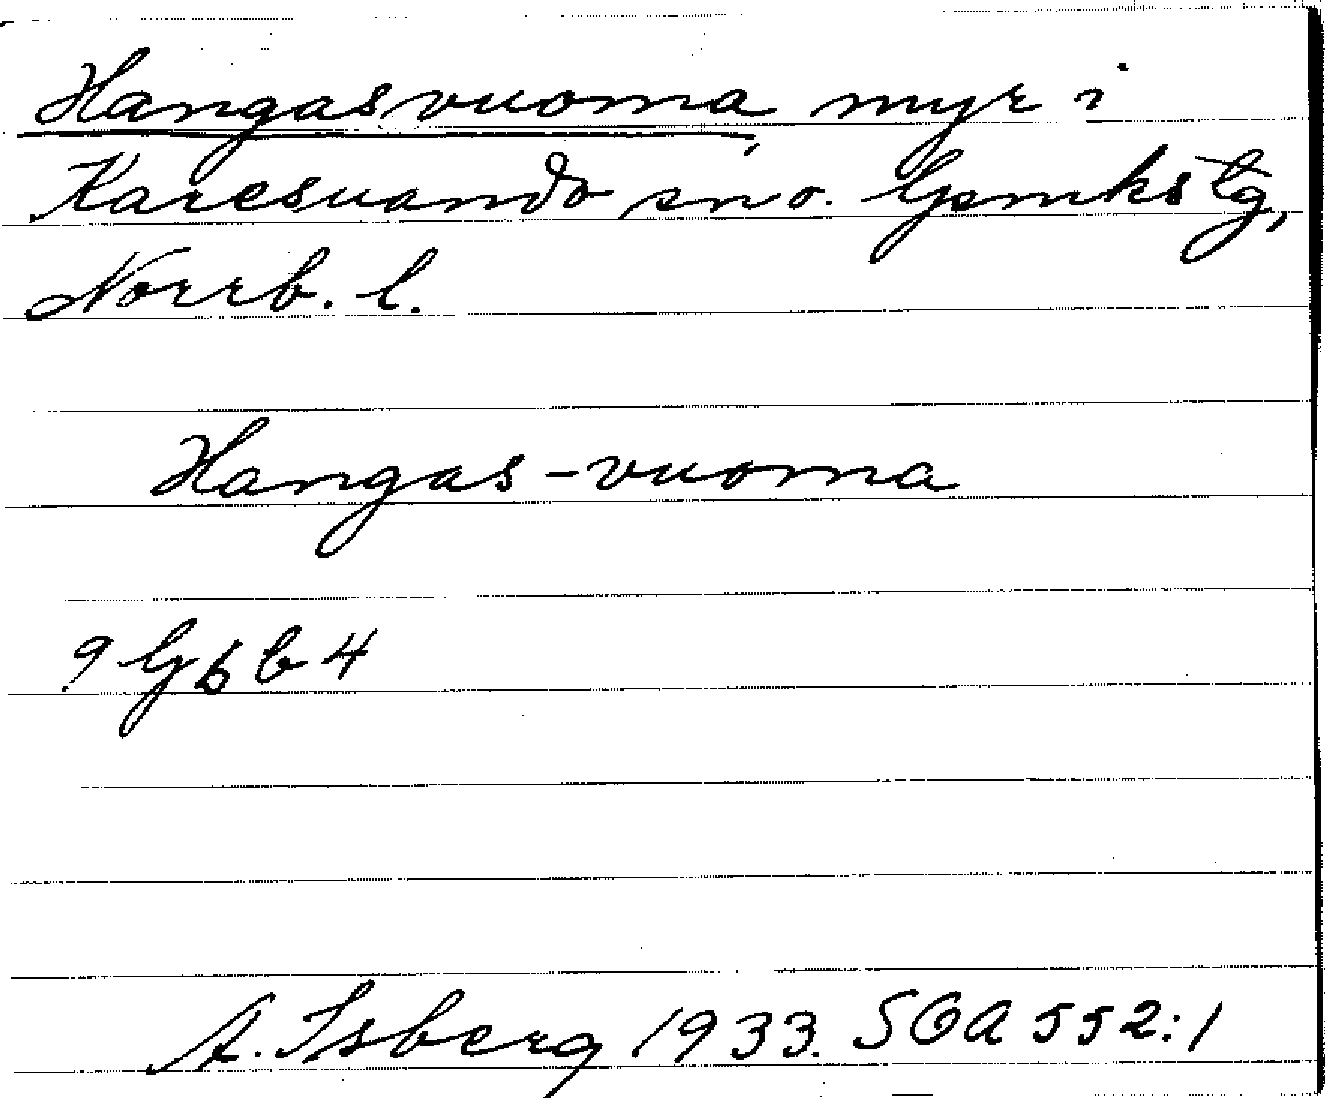 Hangasvuoma, myr i
Karesuando sn o.
Norrb. l.
Hangas-vuoma
A. Isberg 1933. SOA 552:1